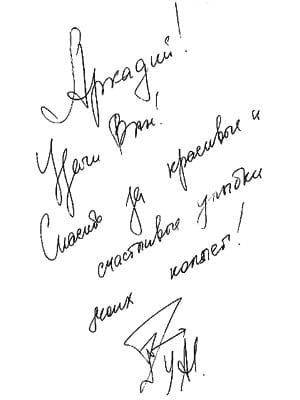 Аркадий!
Удачи Вам!
Спасибо за красивые и
счастливые улыбки
моих